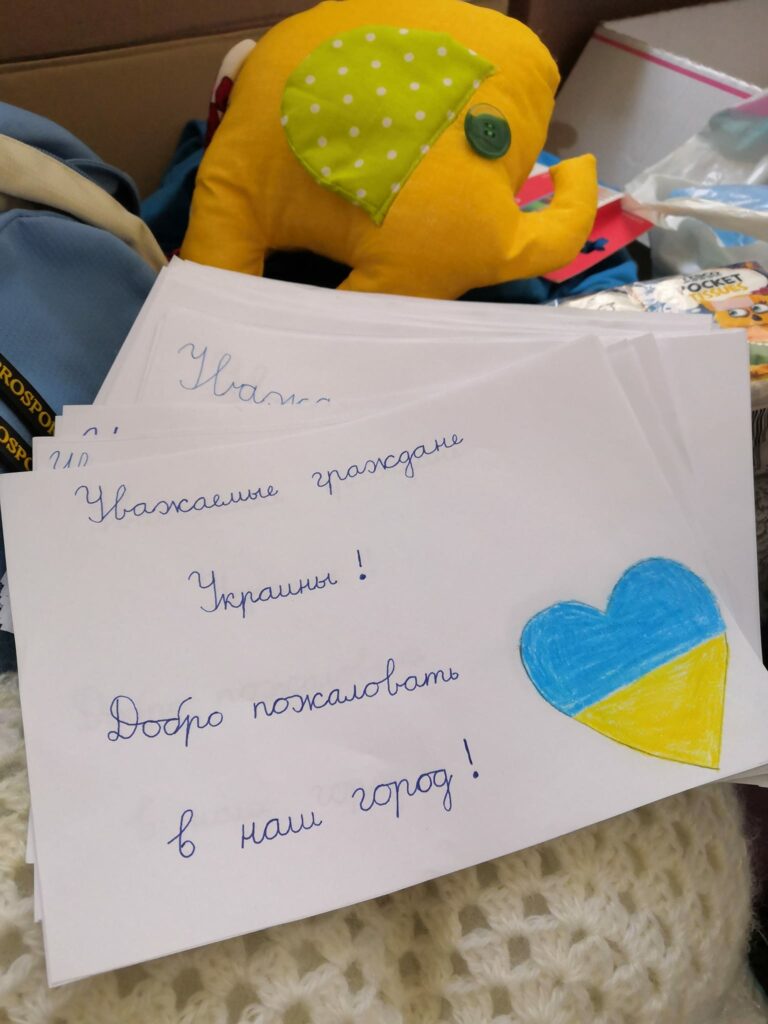 POCKET
TISSUES
Уважа
Уважаемые граждане
Украины!
Добро пожаловать
в наш город!